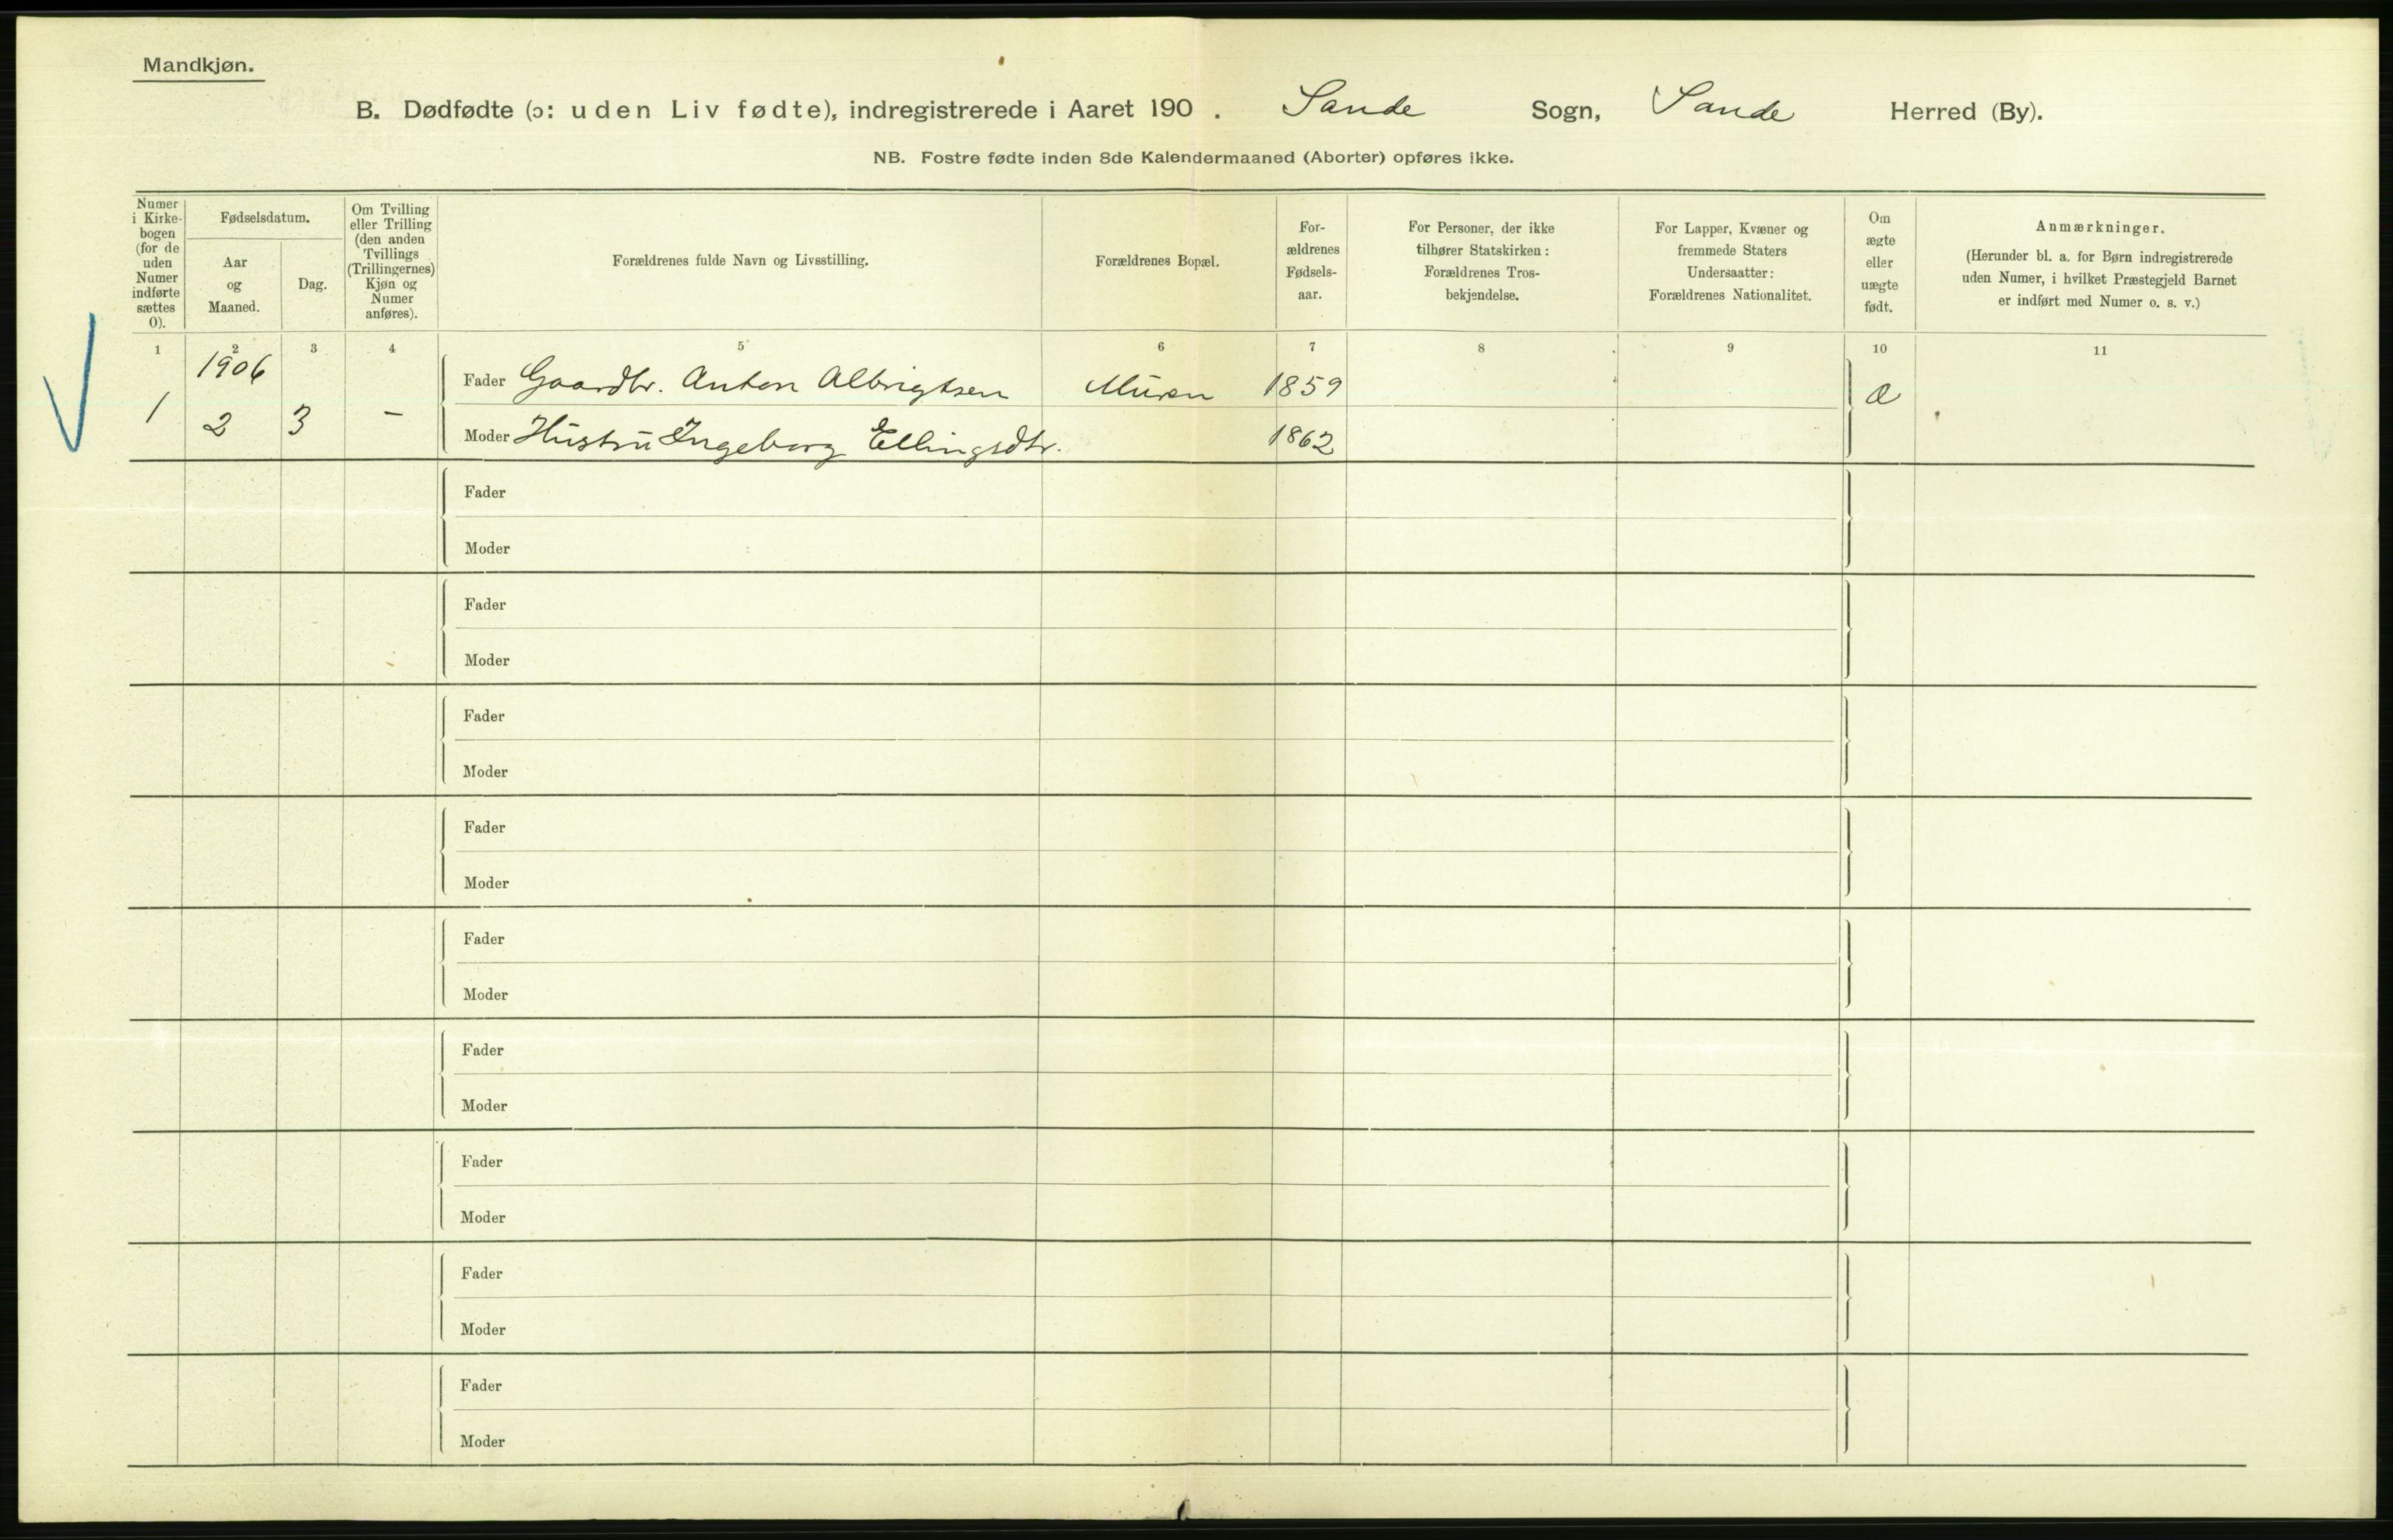 Mandkjøn.
B. Dødfødte (ɔ: uden Liv fødte), indregistrerede i Aaret 190 . Sande Sogn, Sande Herred (By).
NB. Fostre fødte inden 8de Kalendermaaned (Aborter) opføres ikke.
Numer
i Kirke-
bogen
(for de
uden
Numer
indførte
sættes
0).
Fødselsdatum.
Aar
og
Maaned.
Dag.
Om Tvilling
eller Trilling
(den anden
Tvillings
(Trillingernes)
Kjøn og
Numer
anføres).
Forældrenes fulde Navn og Livsstilling.
Forældrenes Bopæl.
For-
ældrenes
Fødsels-
aar.
For Personer, der ikke
tilhører Statskirken:
Forældrenes Tros-
bekjendelse.
For Lapper, Kvæner og
fremmede Staters
Undersaatter:
Forældrenes Nationalitet.
Om
ægte
eller
uægte
født.
Anmærkninger.
(Herunder bl. a. for Børn indregistrerede
uden Numer, i hvilket Præstegjeld Barnet
er indført med Numer o. s. v.)
1 2 3 4 5 6 7 8 9 10 11
1906
Fader Gaardbr. Anton Albrigtsen 1859
1 2 3 –
Moder Hustru Ingeborg Ellingsdtr. 1862
Fader
Moder
Fader
Moder
Fader
Moder
Fader
Moder
Fader
Moder
Fader
Moder
Fader
Moder
Fader
Moder
Fader
Moder